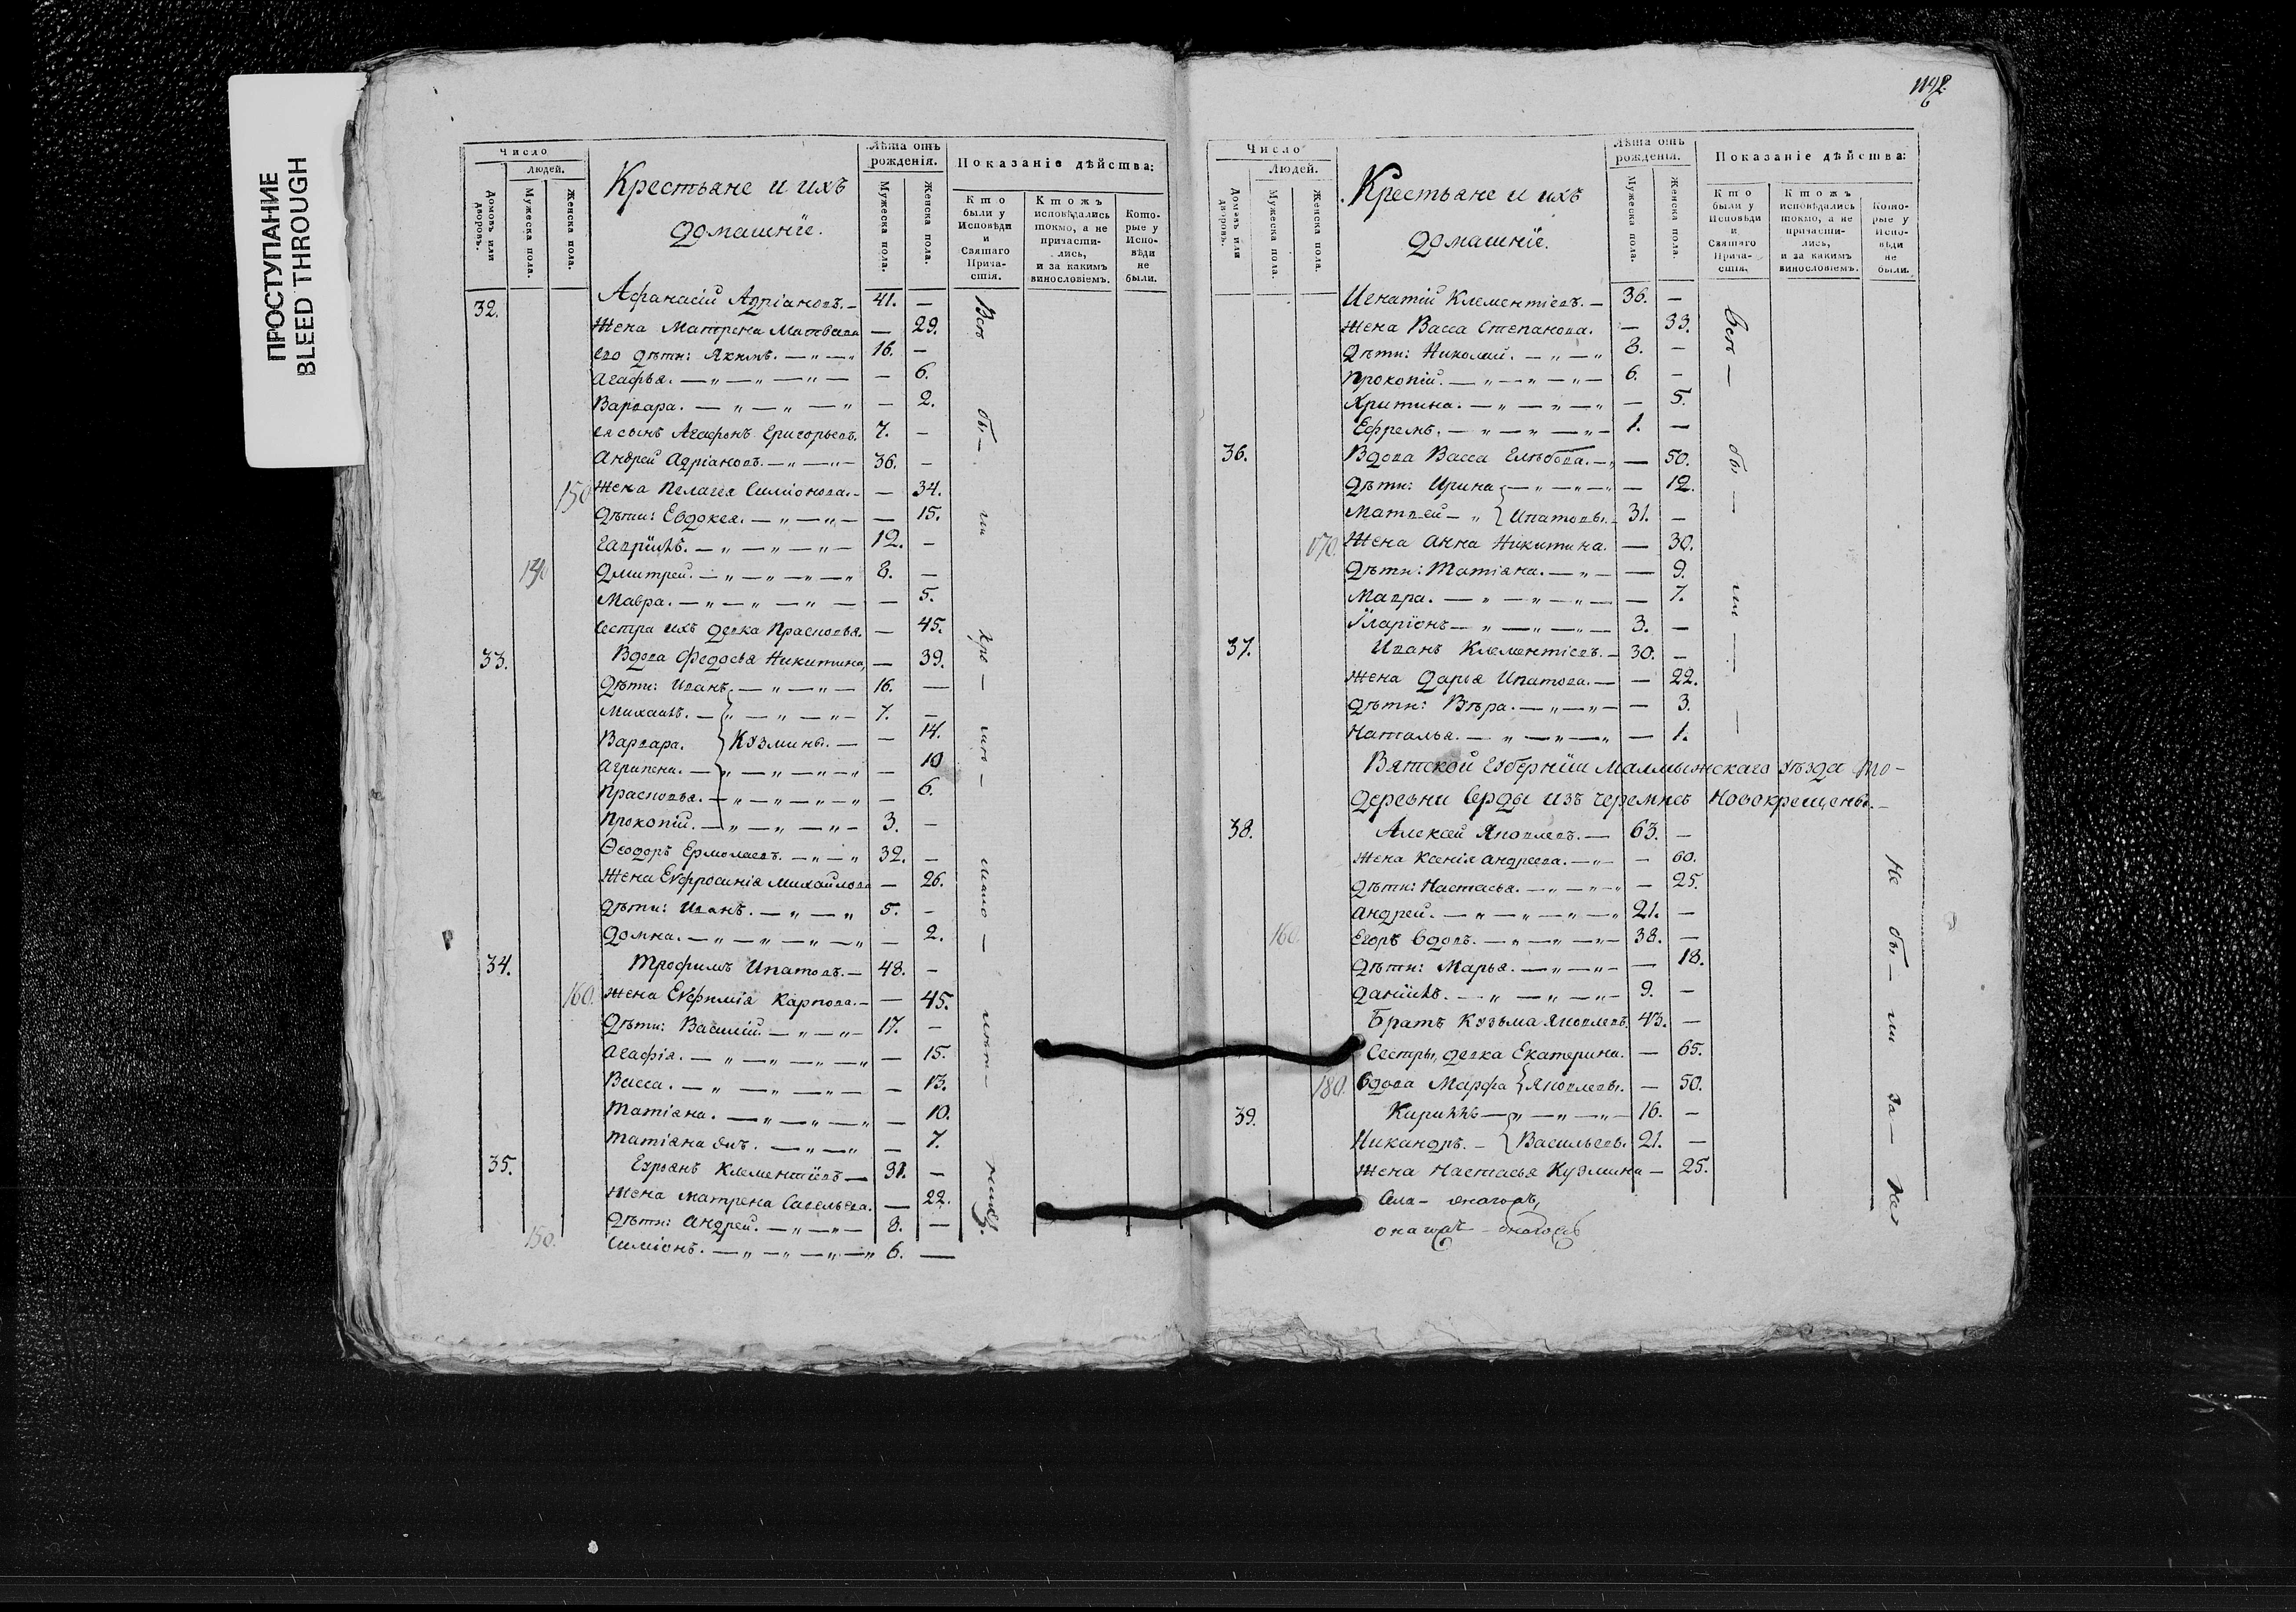 ПРОСТУПАНИЕ
BLEED THROUGH
Число
Людей.
Домовъ или дворовъ.
Мужеска пола.
Женска пола.
Крестьяне и ихъ
домашніе.
Лѣта отъ рожденія.
Мужеска пола.
Женска пола.
Показаніе дѣйства:
Кто были у Исповѣди и Святаго Прича-стія.
Ктожъ исповѣдались токмо, а не причасти-лись, и за какимъ винословіемъ.
Кото-рые у Испо-вѣди не были.
32. Афанасій Адріановъ. — 41. —
Жена Матрена Матвѣева — 29.
его дѣти: Якимъ. — „ — „ 16. —
Агафья. — „ — „ — „ — — 6.
Варвара. — „ — „ — „ — 2.
ея сынъ Агафонъ Григорьевъ. 7. —
Андрей Адріановъ. — „ — „ — 36. —
150 Жена Пелагея Симіонова. — — 34.
Дѣти: Евдокея. — „ — „ — — 15.
Гавріилъ. — „ — „ — „ — 12. —
Дмитрей. — „ — „ — „ — „ 8. —
Мавра. — „ — „ — „ — — 5.
Сестра ихъ девка Прасковья. — 45.
33. Вдова Федосья Никитина, — 39.
Дѣти: Иванъ — „ — „ — 16. —
Михаилъ. — „ — „ — „ — 7. —
Варвара. Кузмины. — — 14.
Агрипена. — „ — „ — „ — „ — 10
Прасковья. — „ — „ — „ — „ — 6.
Прокопій. — „ — „ — „ — 3. —
Ѳеодоръ Ермолаевъ. — „ — „ 32. —
Жена Евфросинія Михайлова — 26.
Дѣти: Иванъ. — „ — „ 5. —
Домна. — „ — „ — „ — „ — 2.
34. Трофимъ Ипатовъ. — 48. —
160. Жена Евфимія Карпова. — — 45.
Дѣти: Василій. — „ — „ — 17. —
Агафія. — „ — „ — „ — „ — 15.
Васса. — „ — „ — „ — — 13.
Татіана. — „ — „ — „ — 10.
Татіана — „ — „ — 7.
35. Клементіевъ — 31. —
Жена Матрена Савельева. — 22.
Дѣти: Андрей. — „ — „ — 8. —
150. Симіонъ. — „ — „ — „ — „ 6. —
Всѣ бы-ли
Число
Людей.
Домовъ или дворовъ.
Мужеска пола.
Женска пола.
Крестьяне и ихъ
домашніе.
Лѣта отъ рожденія.
Мужеска пола.
Женска пола.
Показаніе дѣйства:
Кто были у Исповѣди и Святаго Прича-стія.
Ктожъ исповѣдались токмо, а не причасти-лись, и за какимъ винословіемъ.
Кото-рые у Испо-вѣди не были.
Игнатій Клементіевъ. — 36. —
Жена Васса Степанова. — 33.
Дѣти: Николай. — „ — „ 8. —
Прокопій. — „ — „ — „ — 6. —
Хритина. — „ — „ — „ — 5.
Ефремъ. — „ — „ — „ — 1. —
36. Вдова Васса Глѣбова. — „ — 50.
Дѣти: Ирина — „ — „ — „ — 12.
Матвей — „ Ипатовы. 31. —
170. Жена Анна Никитина. — 30.
Дѣти: Татіана. — „ — — 9.
Мавра. — „ — „ — „ — — 7.
Іларіонъ — „ — „ — „ — 3. —
37. Иванъ Клементіевъ. — 30. —
Жена Дарья Ипатова. — — 22.
Дѣти: Вѣра. — „ — „ — — 3.
Наталья. — „ — „ — „ — 1.
Всѣ — бы — ли —
Вятской Губерніи Малмыжскаго уѣзда
деревни Серды изъ черемисъ Новокрещены. —
38. Алексей Яковлевъ. — 63. —
Жена Ксенія Андреева. — „ — — 60.
Дѣти: Настасья. — „ — „ — „ — 25.
Андрей. — „ — „ — „ — „ 21. —
160. Егоръ вдовъ. — „ — „ — „ — 38. —
Дѣти: Марья. — „ — „ — — 18.
Даніилъ. — „ — „ — „ — 9. —
Братъ Кузьма Яковлевъ. 43. —
Сестры, девка Екатерина. — 65.
180. вдова Марфа Яковлевы. — 50.
39. Кириллъ — „ — „ — „ — 16. —
Никандръ. — Васильевы. 21. —
Жена Настасья Кузмина — 25.
Не бы — ли за —